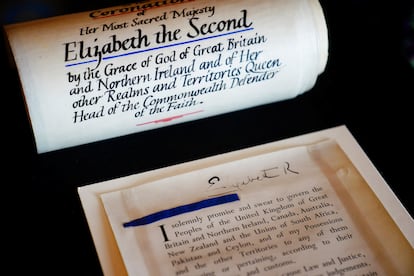 Coronation
Her Most Sacred Majesty
Elizabeth the Second
by the Grace of God of Great Britain
and Northern Ireland and of Her
other Realms and Territories Queen
Head of the Commonwealth Defender
of the Faith
Elizabeth R
I solemnly promise and swear to govern the
Peoples of the United Kingdom of Great
Britain and Northern Ireland, Canada, Australia,
New Zealand and the Union of South Africa,
Pakistan and Ceylon, and of my Possessions
and the other Territories to any of them
pertaining, according to their
and customs.
cause Law and Justice,